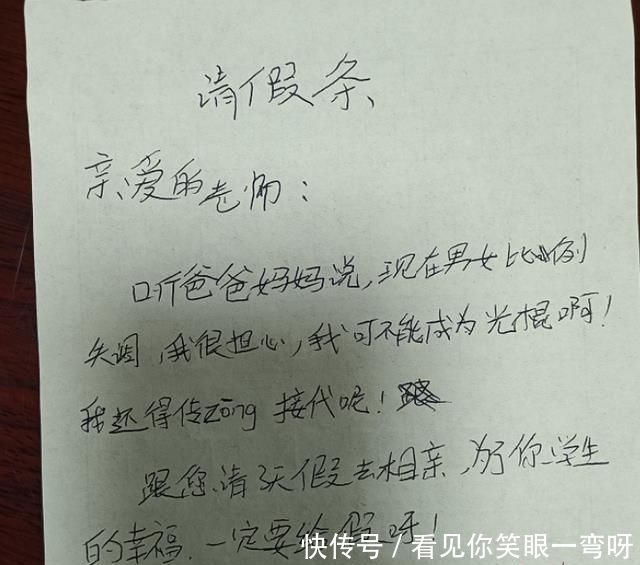 请假条
亲爱的老师:
听爸爸妈妈说,现在男女比例
失调,我很担心,我可不能成为光棍啊!
我还得传zōng接代呢!
跟您请3天假去相亲,为了你学生
的幸福,一定要给假呀!
快传号/看见你笑眼一弯呀